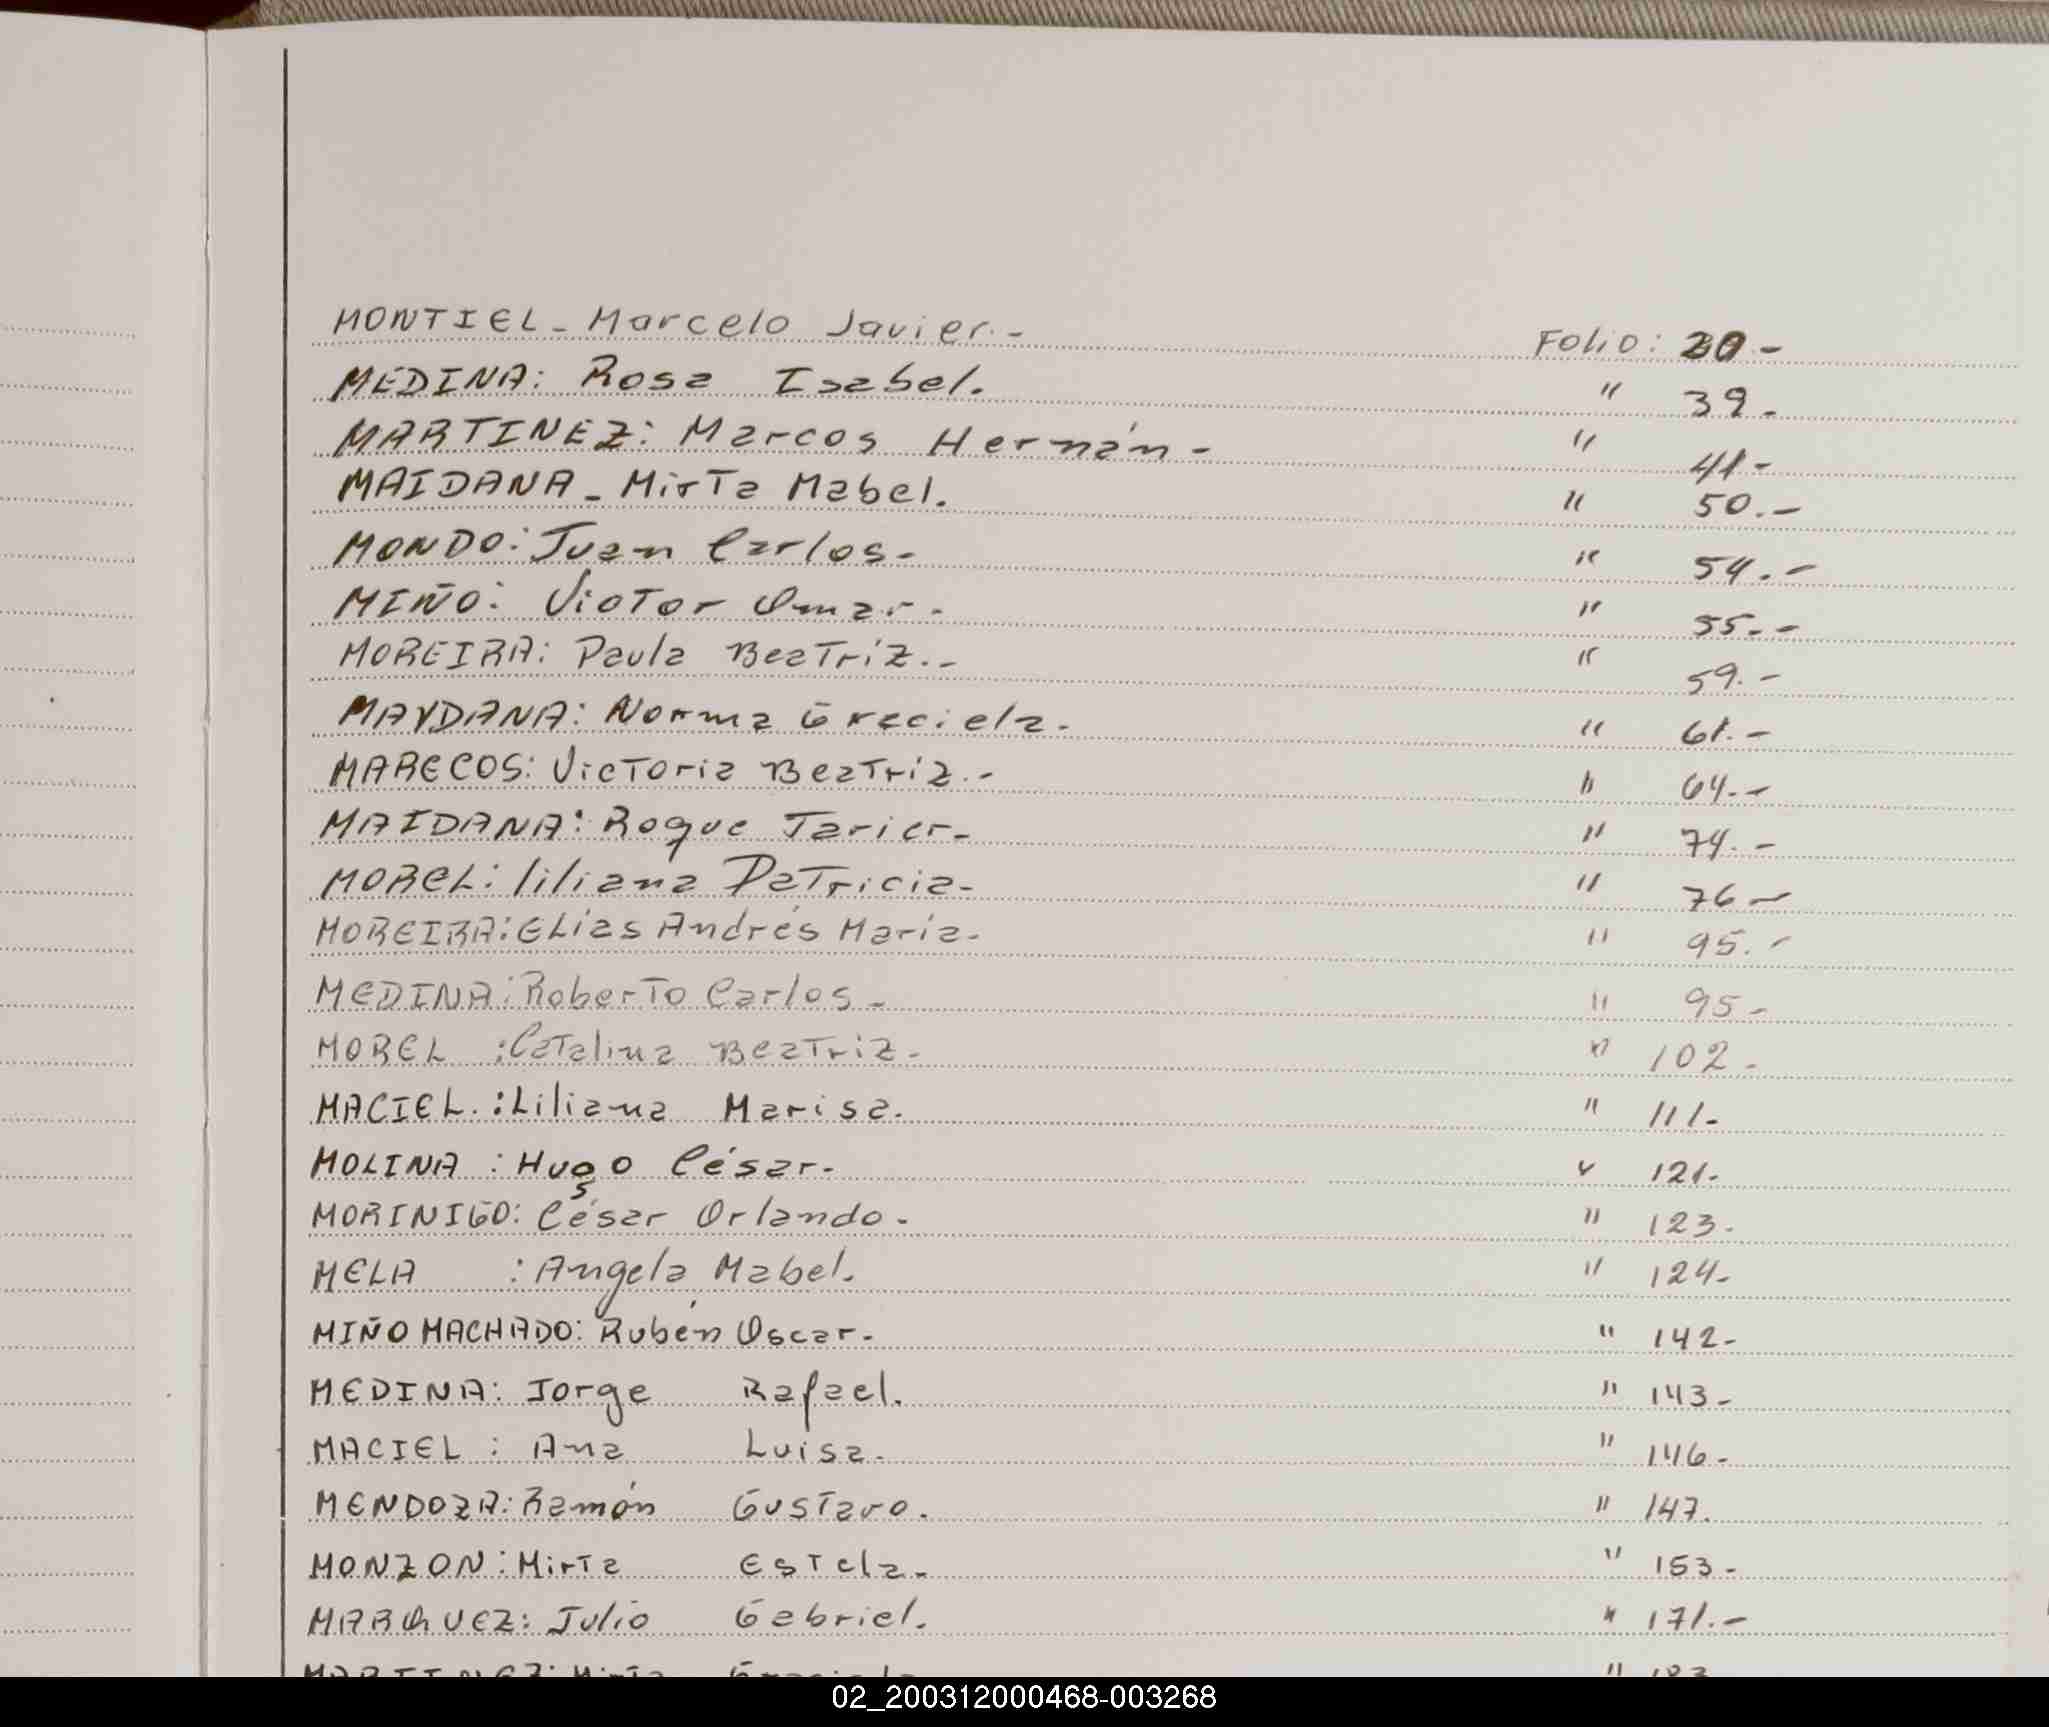 MONTIEL - Marcelo Javier. - Folio: 20 -
MEDINA: Rosa Isabel. " 39 -
MARTINEZ: Marcos Hernán - " 41 -
MAIDANA - Mirta Mabel. " 50. -
MONDO: Juan Carlos - " 54. -
MIÑO: Victor Omar - " 55. -
MOREIRA: Paula Beatríz. - " 59. -
MAYDANA: Norma Graciela. " 61. -
MARECOS: Victoria Beatríz. - " 64. -
MAIDANA: Roque Javier - " 74. -
MOREL: liliana Patricia - " 76 -
MOREIRA: Elías Andrés María - " 95. -
MEDINA: Roberto Carlos - " 95 -
MOREL : Catalina Beatriz - " 102 -
MACIEL. : Liliana Marisa. " 111 -
MOLINA : Hugo César - " 121 -
MORINIGO: César Orlando - " 123 -
MELA : Angela Mabel. " 124 -
MIÑO MACHADO: Rubén Oscar - " 142 -
MEDINA: Jorge Rafael. " 143 -
MACIEL : Ana Luisa - " 146 -
MENDOZA: Ramón Gustavo. " 147.
MONZON: Mirta Estela - " 153 -
MARQUEZ: Julio Gabriel. " 171. -
MARTINEZ: Mirta Graciela "
02_200312000468-003268